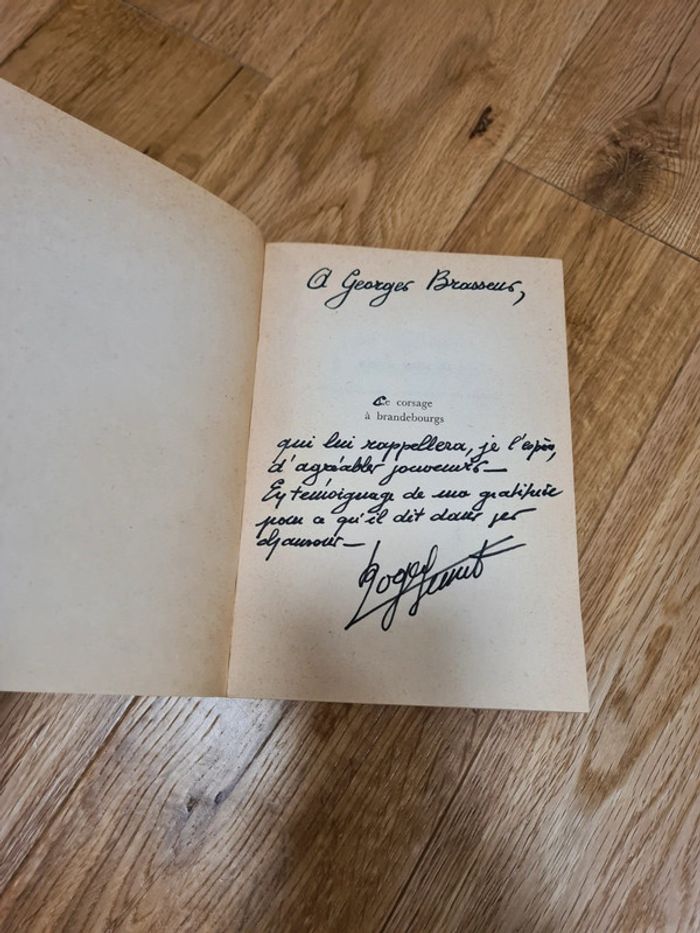 A Georges Brassens,
Ce corsage
à brandebourgs
qui lui rappellera, je l'espère,
d'agréables souvenirs —
En témoignage de ma gratitude
pour ce qu'il dit dans ses
chansons —
Roger